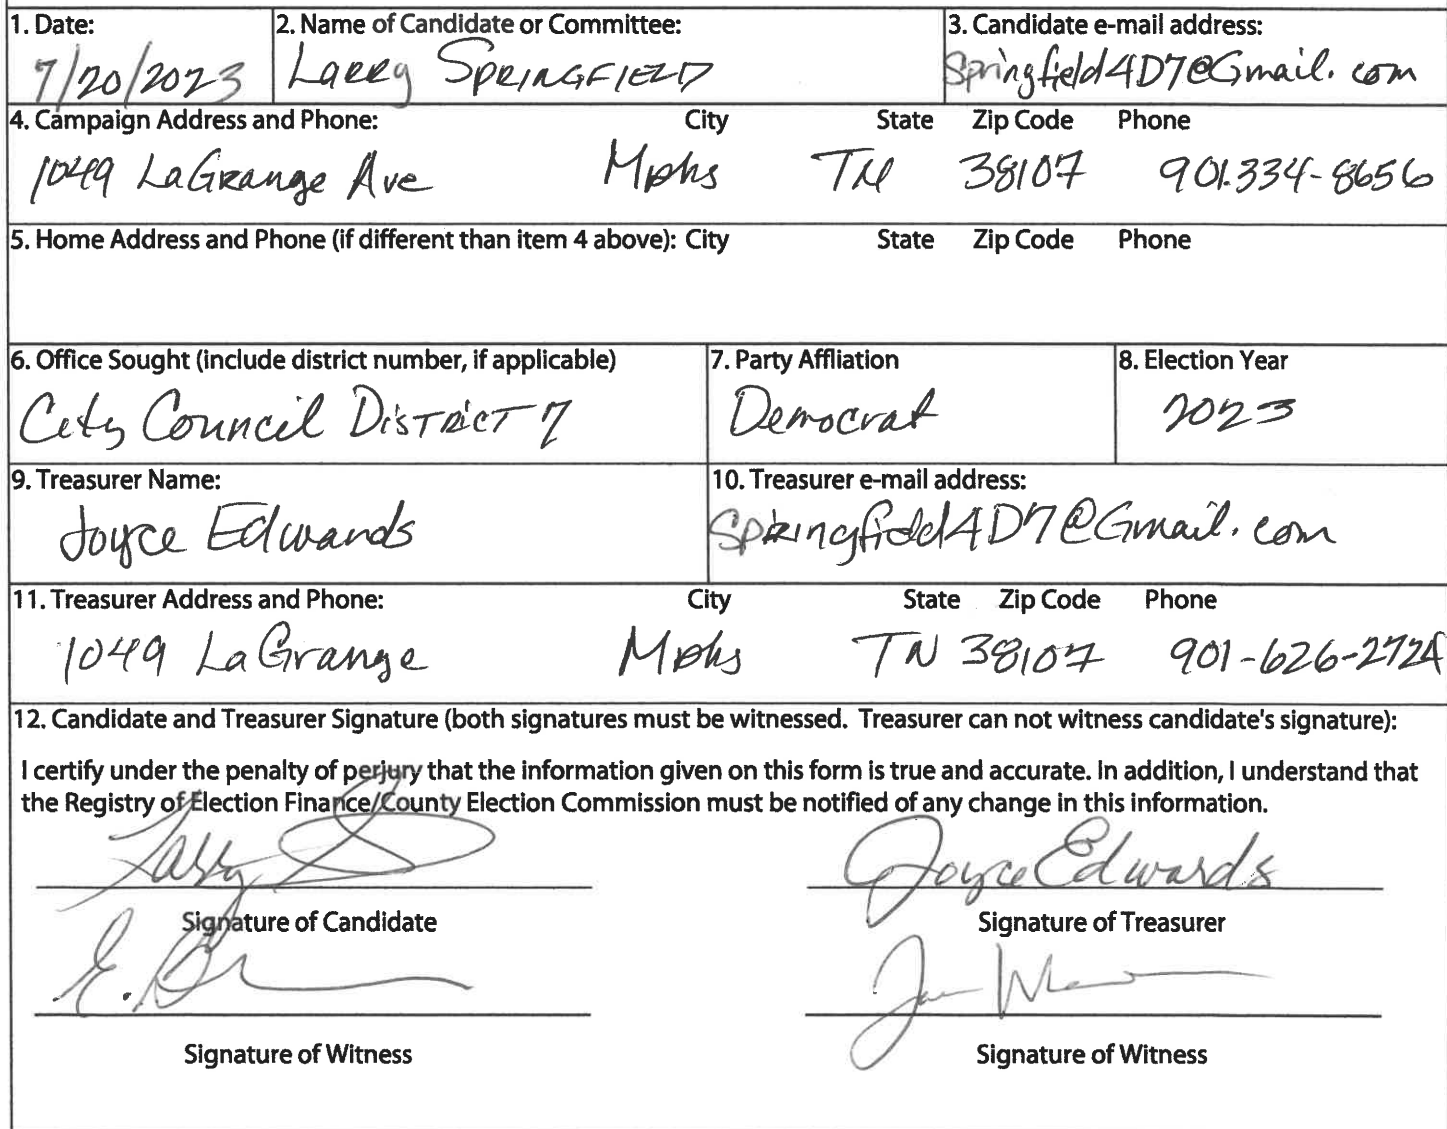 1. Date: 2. Name of Candidate or Committee: 3. Candidate e-mail address:
7/20/2023 Larry SPRINGFIELD Springfield4D7@Gmail.com
4. Campaign Address and Phone: City State Zip Code Phone
1049 LaGrange Ave Mphs TN 38107 901.334-8656
5. Home Address and Phone (if different than item 4 above): City State Zip Code Phone
6. Office Sought (include district number, if applicable) 7. Party Affliation 8. Election Year
City Council District 7 Democrat 2023
9. Treasurer Name: 10. Treasurer e-mail address:
Joyce Edwards Springfield4D7@Gmail.com
11. Treasurer Address and Phone: City State Zip Code Phone
1049 LaGrange Mphs TN 38107 901-626-2724
12. Candidate and Treasurer Signature (both signatures must be witnessed. Treasurer can not witness candidate's signature):
I certify under the penalty of perjury that the information given on this form is true and accurate. In addition, I understand that
the Registry of Election Finance/County Election Commission must be notified of any change in this information.
Larry Joyce Edwards
Signature of Candidate Signature of Treasurer
E.
Signature of Witness Signature of Witness